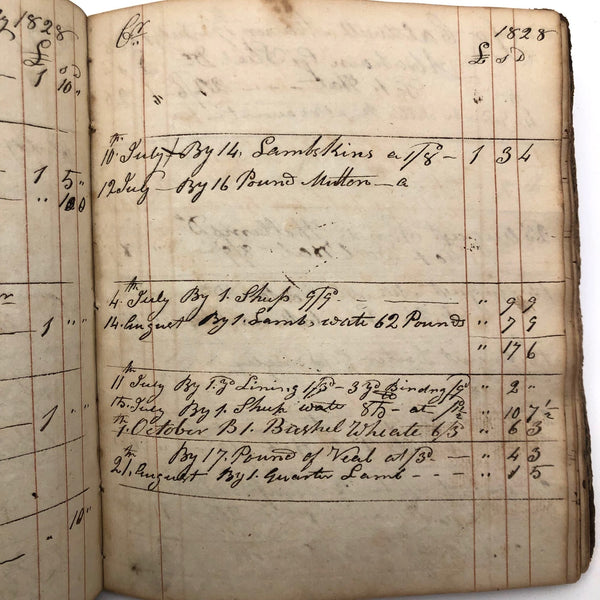 1828
£ s D
1 10 "
1 5 "
" 10 0
1 " "
1 " "
10 "
Cr 1828
£ s D
"
10th July By 14 Lambskins a 1/8 - 1 3 4
12 July - By 16 Pound Mutton - a
4th July By 1 Shup 9/9d - " 9 9
14 August By 1 Lamb, wate 62 Pounds " 7 9
" 17 6
11th July By 1 yd Lining 1/3d - 3 yd Bindng " 2 "
July By 1 Shup wate 85 - at " 10 7 1/2
October B 1 Bushel Wheate 6/3d " 6 3
By 17 Pound of Veal at /3d - " 4 3
21 August By 1 Quarter Lamb - - - " 1 5